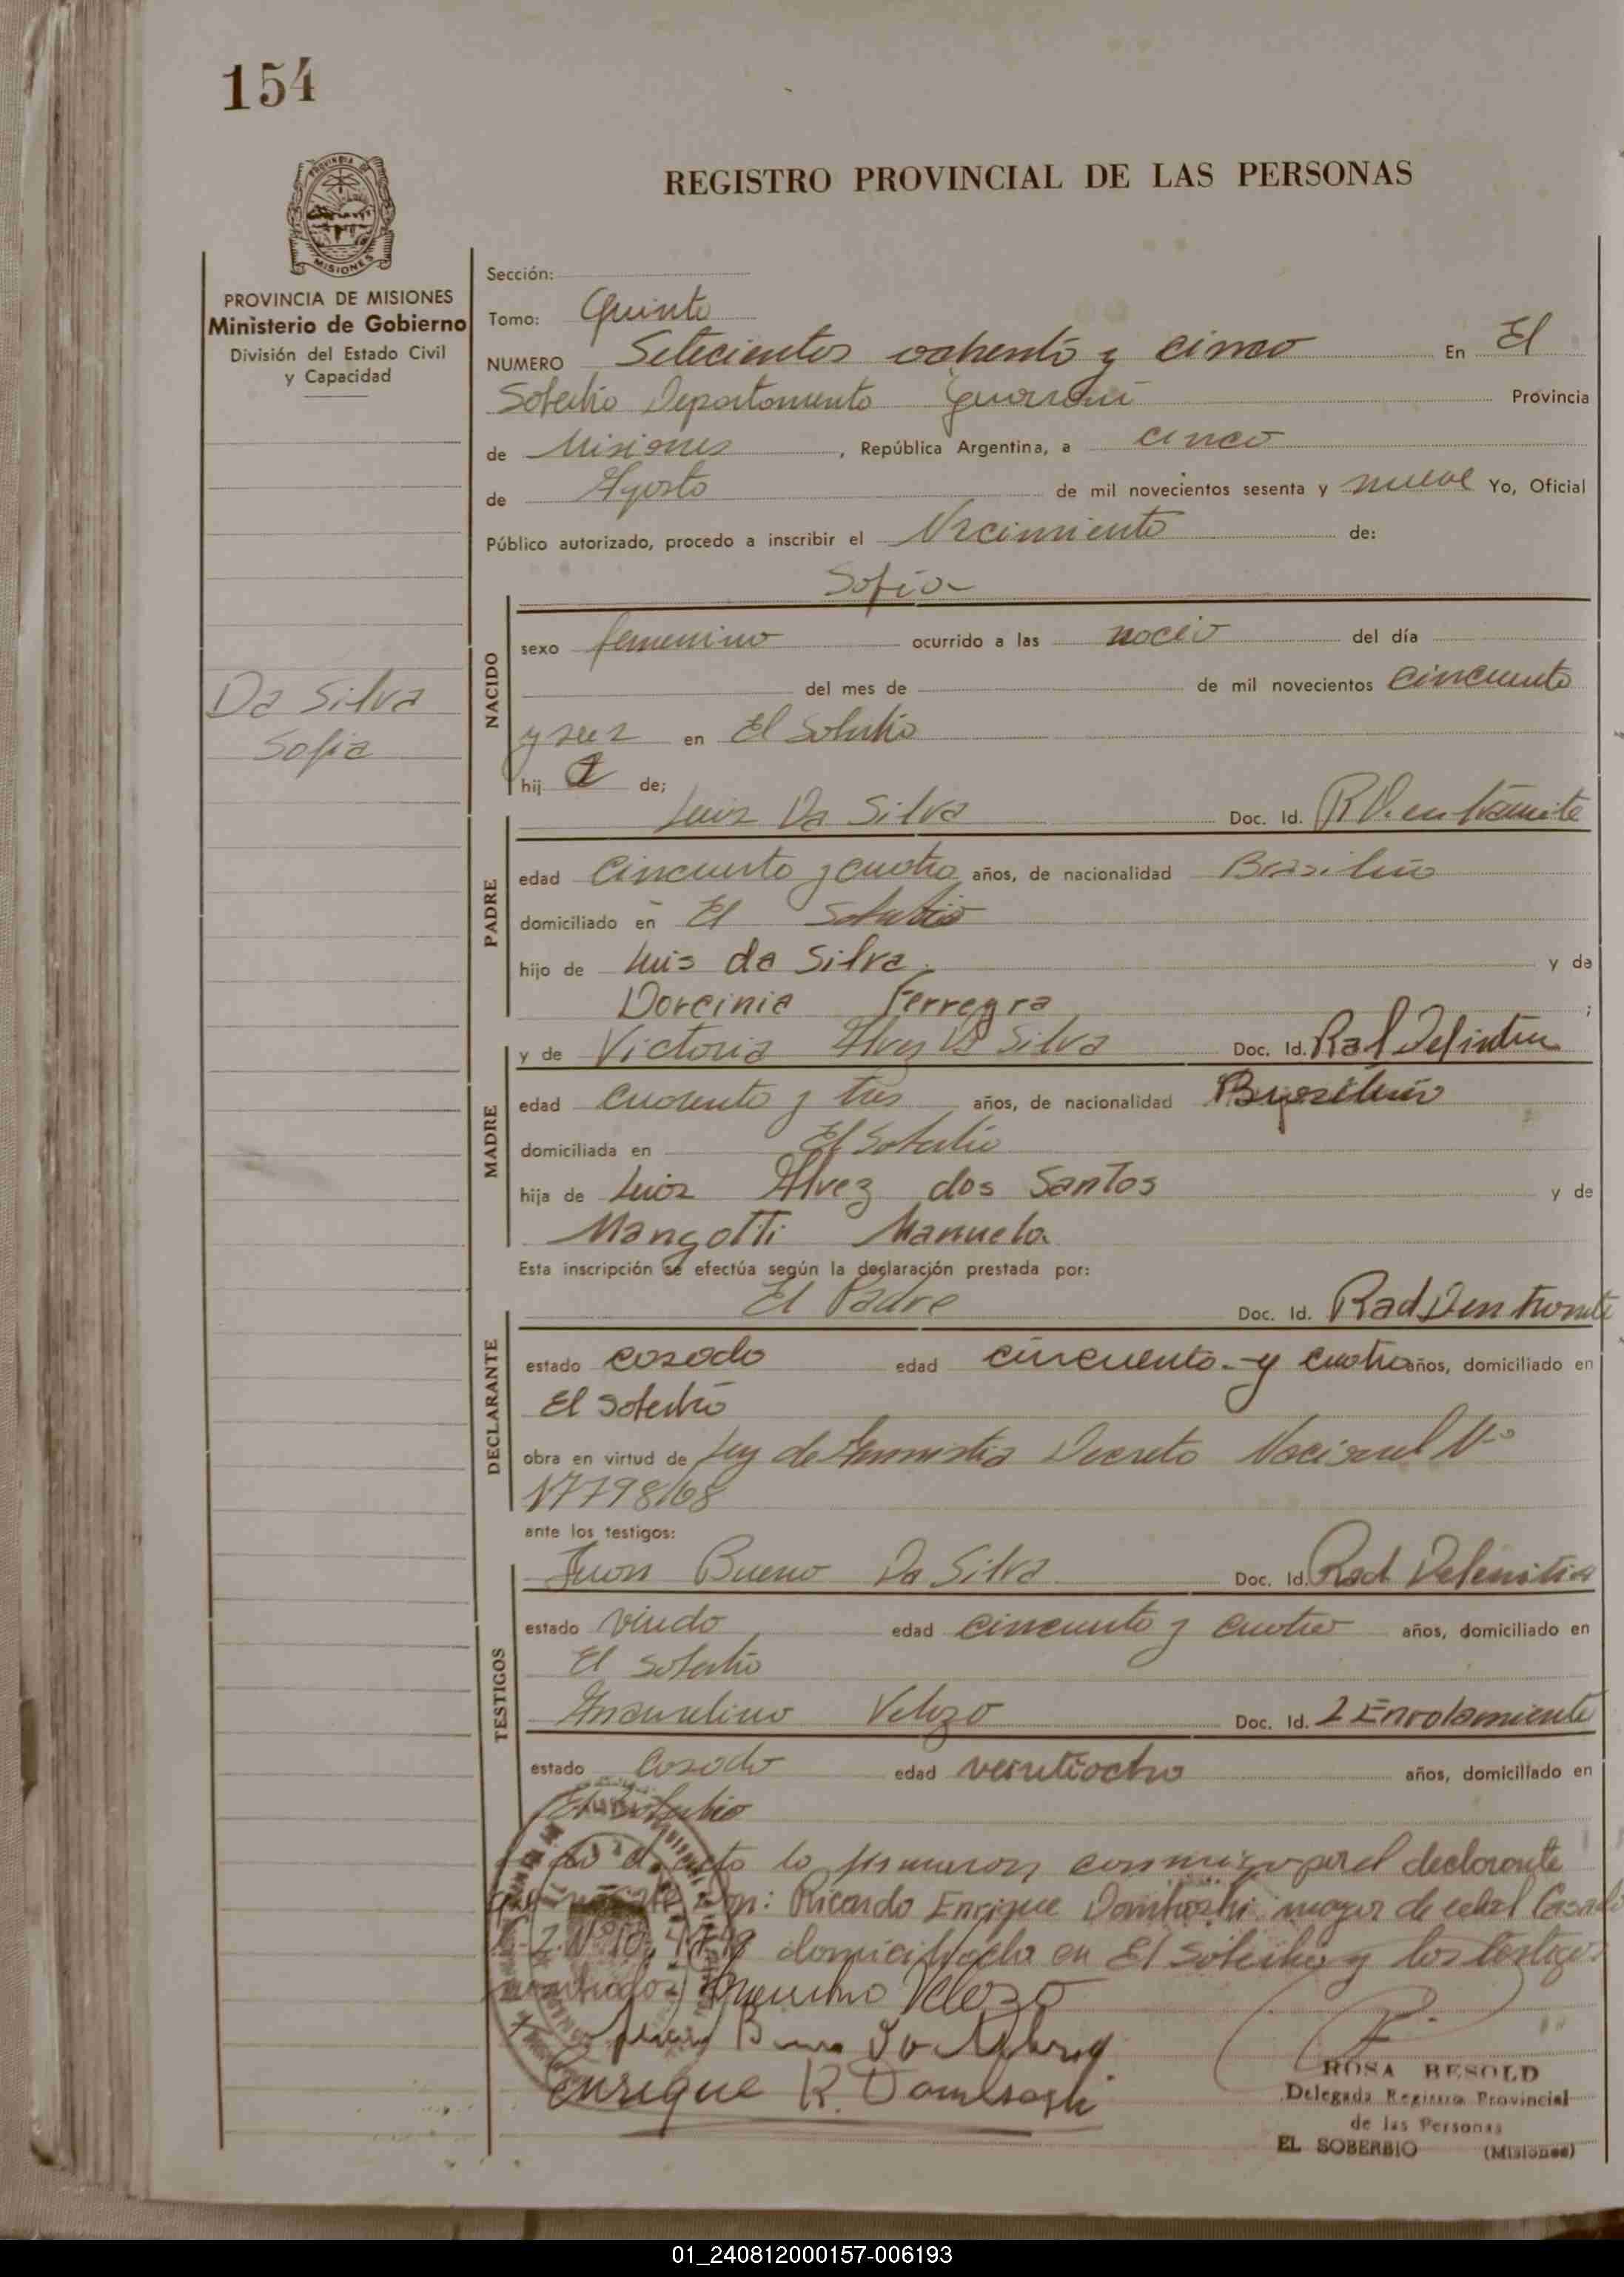 154
PROVINCIA DE MISIONES
Ministerio de Gobierno
División del Estado Civil
y Capacidad
Da Silva
Sofia
REGISTRO PROVINCIAL DE LAS PERSONAS
Sección:
Tomo: Quinto
NUMERO Setecientos ochenta y cinco En El
Soberbio Departamento Guaraní Provincia
de Misiones, República Argentina, a cinco
de Agosto de mil novecientos sesenta y nueve Yo, Oficial
Público autorizado, procedo a inscribir el Nacimiento de:
Sofia
NACIDO
sexo femenino ocurrido a las nació del día
del mes de de mil novecientos cincuenta
y seis en El Soberbio
hij a de;
PADRE
Luis Da Silva Doc. Id. R.D. en trámite
edad cincuenta y cuatro años, de nacionalidad Brasileño
domiciliado en El Soberbio
hijo de Luis da Silva y de
Dorcinia Ferregra ;
MADRE
y de Victoria Alves Da Silva Doc. Id.
edad cuarenta y tres años, de nacionalidad
domiciliada en El Soberbio
hija de Luiz Alvez dos Santos y de
Mangotti Manuela
Esta inscripción se efectúa según la declaración prestada por:
DECLARANTE
El Padre Doc. Id. Rad Den tramite
estado casado edad cincuenta y cuatro años, domiciliado en
El Soberbio
obra en virtud de Ley de Amnistia Decreto Nacional Nº
17798/68
ante los testigos:
TESTIGOS
Juan Bueno Da Silva Doc. Id. Rad Definitiva
estado viudo edad cincuenta y cuatro años, domiciliado en
El Soberbio
Velozo Doc. Id. L Enrolamiento
estado casado edad veintiocho años, domiciliado en
El Soberbio
acto lo firmaron conmigo por el declarante
Don: Ricardo Enrique mayor de edad Casado
domiciliado en El Soberbio y los testigos
nombrados Velozo
Enrique R.
ROSA BESOLD
Delegada Registro Provincial
de las Personas
EL SOBERBIO (Misiones)
01_240812000157-006193